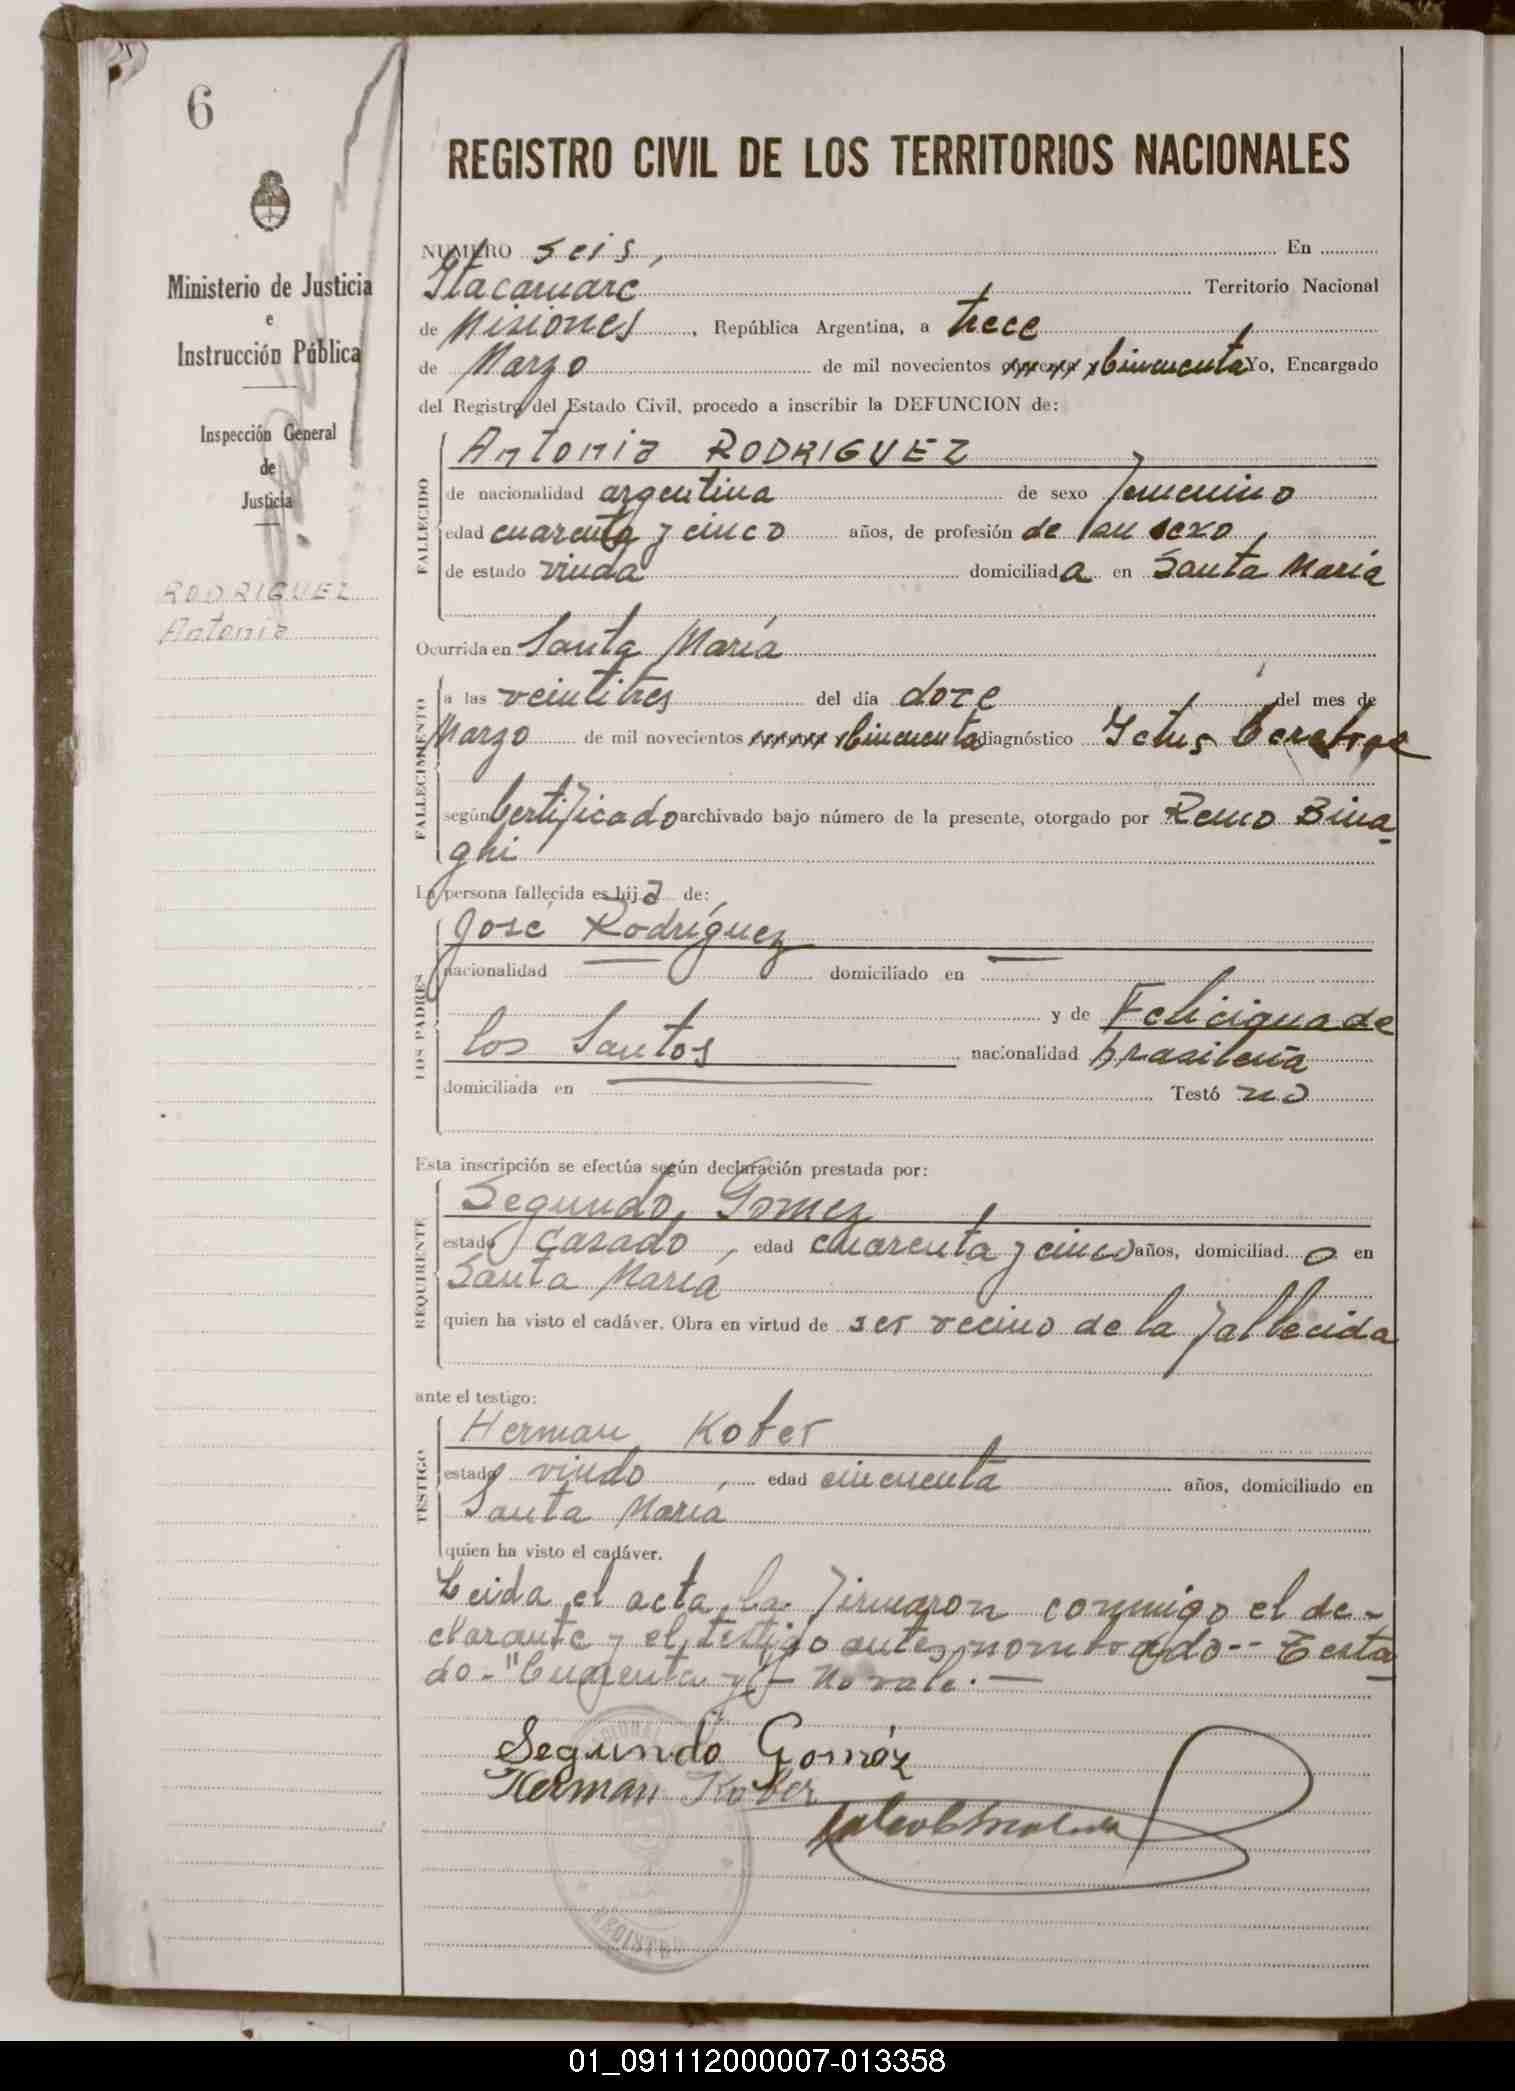 6
Ministerio de Justicia
e
Instrucción Pública
Inspección General
de
Justicia
RODRIGUEZ
Antonia
REGISTRO CIVIL DE LOS TERRITORIOS NACIONALES
NUMERO seis, En
Itacaruaré Territorio Nacional
de Misiones, República Argentina, a trece
de Marzo de mil novecientos Cincuenta Yo, Encargado
del Registro del Estado Civil, procedo a inscribir la DEFUNCION de:
FALLECIDO
Antonia RODRIGUEZ
de nacionalidad argentina de sexo femenino
edad cuarenta y cinco años, de profesión de su sexo
de estado viuda domiciliada en Santa María
Ocurrida en Santa María
FALLECIMIENTO
a las veintitres del día doce del mes de
Marzo de mil novecientos Cincuenta diagnóstico Ictus Cerebral
según Certificado archivado bajo número de la presente, otorgado por Remo Bina-
ghi
La persona fallecida es hija de:
LOS PADRES
José Rodríguez
nacionalidad — domiciliado en —
y de Feliciana de
los Santos nacionalidad brasileña
domiciliada en — Testó no
Esta inscripción se efectúa según declaración prestada por:
REQUIRENTE
Segundo Gomez
estado Casado, edad cuarenta y cinco años, domiciliado en
Santa María
quien ha visto el cadáver. Obra en virtud de ser vecino de la fallecida
ante el testigo:
TESTIGO
Herman Kober
estado viudo, edad cincuenta años, domiciliado en
Santa María
quien ha visto el cadáver.
Leida el acta la firmaron conmigo el de-
clarante y el testigo antes nombrado -- Testa
do - "Cuarenta y" - No vale. —
Segundo Goméz
Herman Kober
REGISTRO
01_091112000007-013358